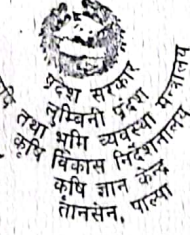 प्रदेश सरकार
लुम्बिनी प्रदेश
कृषि तथा भूमि व्यवस्था मन्त्रालय
कृषि विकास निर्देशनालय
कृषि ज्ञान केन्द्र
तानसेन, पाल्पा